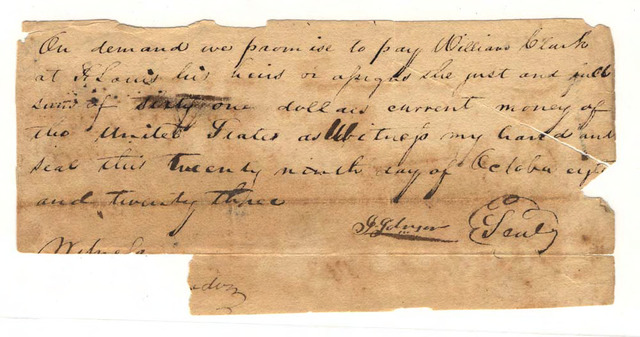 On demand we promise to pay William Clark
at St Louis his heirs or assigns the just and full
sum of sixty one dollars current money of
the United States as Witness my hand and
seal this twenty ninth day of October eigh
and twenty three
Seal
Witness